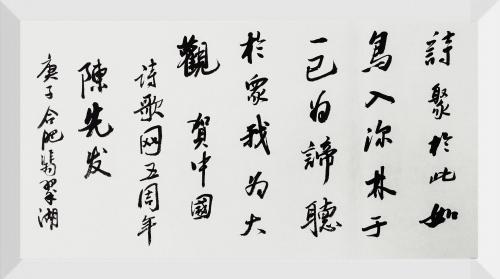 詩聚於此如
鳥入深林于
一己为諦聽
於眾我为大
觀 賀中國
詩歌网五周年
陳先发
庚子合肥翡翠湖